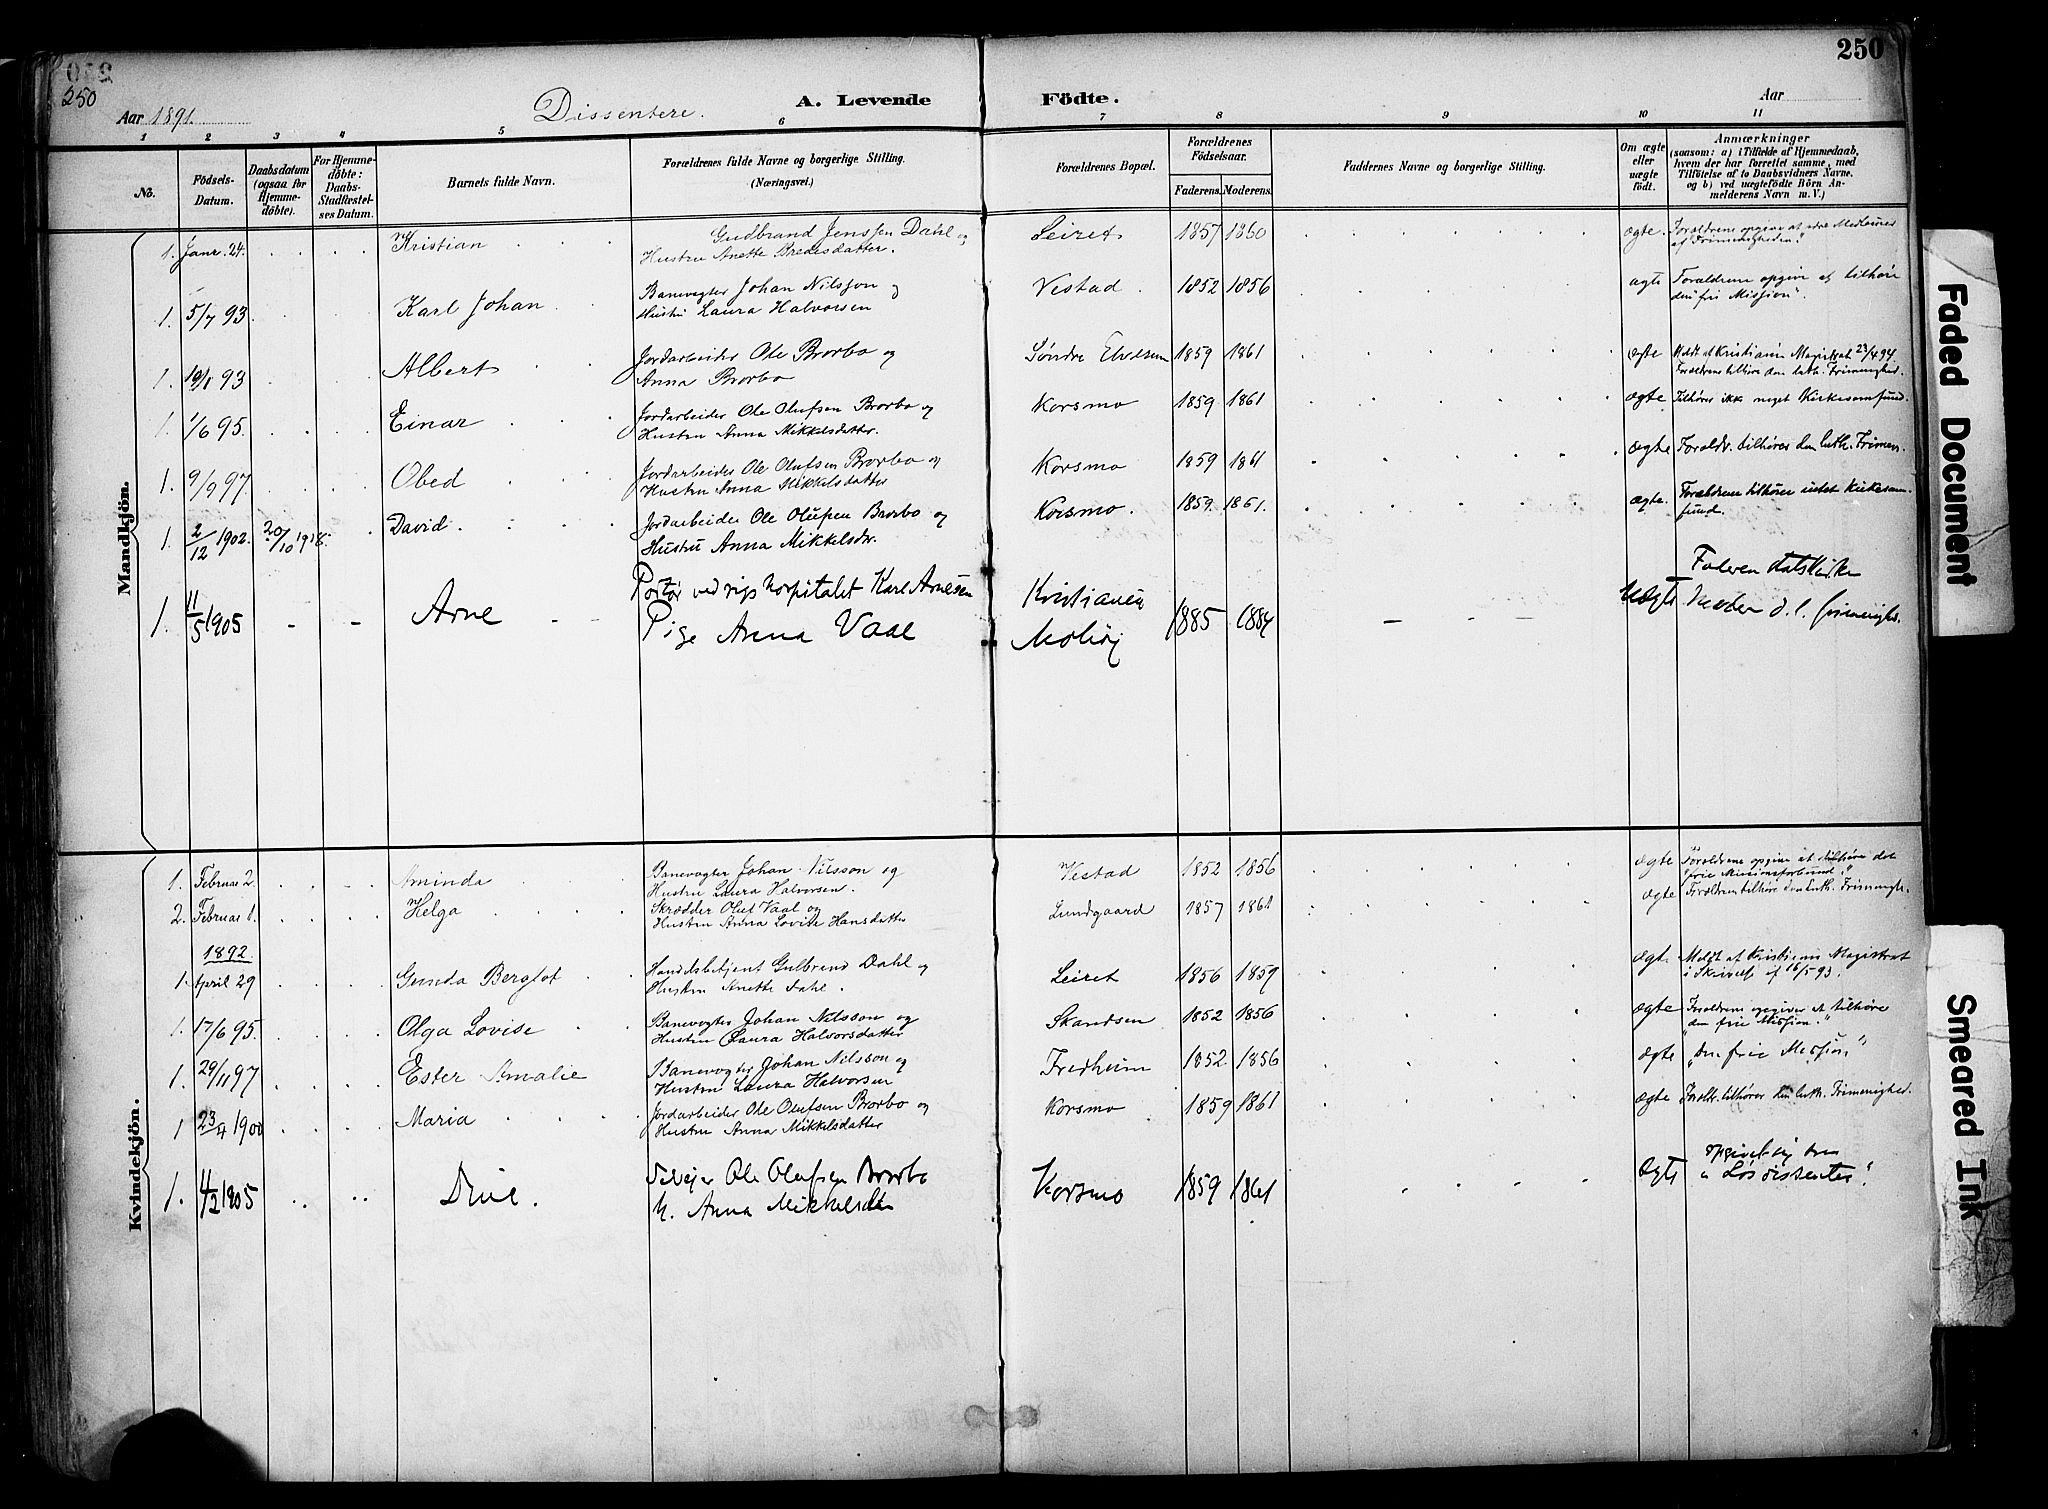 250
250
Aar 1891.
Dissentere.
A. Levende
Födte.
Aar
1 2 3 4 5 6 7 8 9 10 11
No.
Födsels-
Datum.
Daabsdatum
(ogsaa for
Hjemme-
döbte).
For Hjemme-
döbte:
Daabs-
Stadfæstel-
ses Datum.
Barnets fulde Navn.
Forældrenes fulde Navne og borgerlige Stilling.
(Næringsvei.)
Forældrenes Bopæl.
Forældrenes
Födselsaar.
Faderens. Moderens.
Faddernes Navne og borgerlige Stilling.
Om ægte
eller
uægte
födt.
Anmærkninger
(saasom: a) i Tilfælde af Hjemmedaab,
hvem der har forrettet samme, med
Tilföielse af to Daabsvidners Navne,
og b) ved uægtefödte Börn An-
melderens Navn m. V.)
Mandkjön.
1. Janr. 24. Kristian Gudbrand Jenssen Dahl og Leiret 1857 1860 ægte. Forældrene opgive at være Medlemmer
Hustru Anette Bredesdatter. af Frimenigheden."
1. 5/7 93 Karl Johan Banevogter Johan Nilsson og Vestad. 1852 1856 ægte Forældrene opgive at tilhøre
Hustru Laura Halvorsen den "fri Mission".
1. 19/8 93 Albert Jordarbeider Ole Brorbo og Søndre Elvesum 1859 1861 ægte Meldt af Kristiania Magistrat 23/4 94.
Anna Brorbo Forældrene tilhøre den luth. Frimenighed.
1. 1/6 95. Einar Jordarbeider Ole Olufsen Brorbo og Korsmo 1859 1861 ægte Tilhører ikke noget Kirkesamfund.
Hustru Anna Mikkelsdatter.
1. 9/9 97. Obed Jordarbeider Ole Olufsen Brorbo og Korsmo 1859 1861 ægte Forældr. tilhører den luth. Frimen.
Hustru Anna Mikkelsdatter
1. 2/12 1902. David. Jordarbeider Ole Olufsen Brorbo og Korsmo. 1859. 1861. ægte. Forældrene tilhører intet Kirkesam-
Hustru Anna Mikkelsdr. fund.
1. 11/5 1905 Arne Portør ved rigshospitalet Karl Arnesen Kristiania Uægte Faderen statskirke
Pige Anna Vaal 1885 1884 Moder d. l. frimenigh.
Kvindekjön.
1. Februar 2. Aminda Banevogter Johan Nilsson og Vestad 1852 1856 ægte Forældrene opgive at tilhøre det
Hustru Laura Halvorsen. frie Missionsforbund."
2. Februar 1. Helga Skrædder Oluf Vaal og Lundgaard 1857 1861 ægte Forældren tilhøre den luth. Frimenigh.
Hustru Anna Lovise Hansdatter
1892.
1. April 29 Gunda Bergljot Handelsbetjent Gulbrand Dahl og Leiret 1856 1859 ægte Meldt af Kristiania Magistrat
Hustru Anette Dahl. i Skrivelse af 16/5 93.
1. 17/6 95. Olga Lovise Banevogter Johan Nilsson og Skandsen 1852 1856 ægte Forældrene opgiver at tilhøre
Hustru Laura Halvorsdatter "den frie Mission."
1. 29/11 97 Ester Amalie Banevogter Johan Nilsson og Fredheim 1852 1856 ægte "den frie Mission"
Hustru Laura Halvorsen
1 23/4 1900 Maria Jordarbeider Ole Olufsen Brorbo og Korsmo 1859 1861 ægte Forældr. tilhører den luth. Frimenighed.
Hustru Anna Mikkelsdatter
1. 1905 Selveier Ole Olufsen Brorbo Korsmo 1859 1861 Ægte opgivet sig som
h. Anna Mikkelsdtr "Løsdissenter."
Faded Document
Smeared Ink